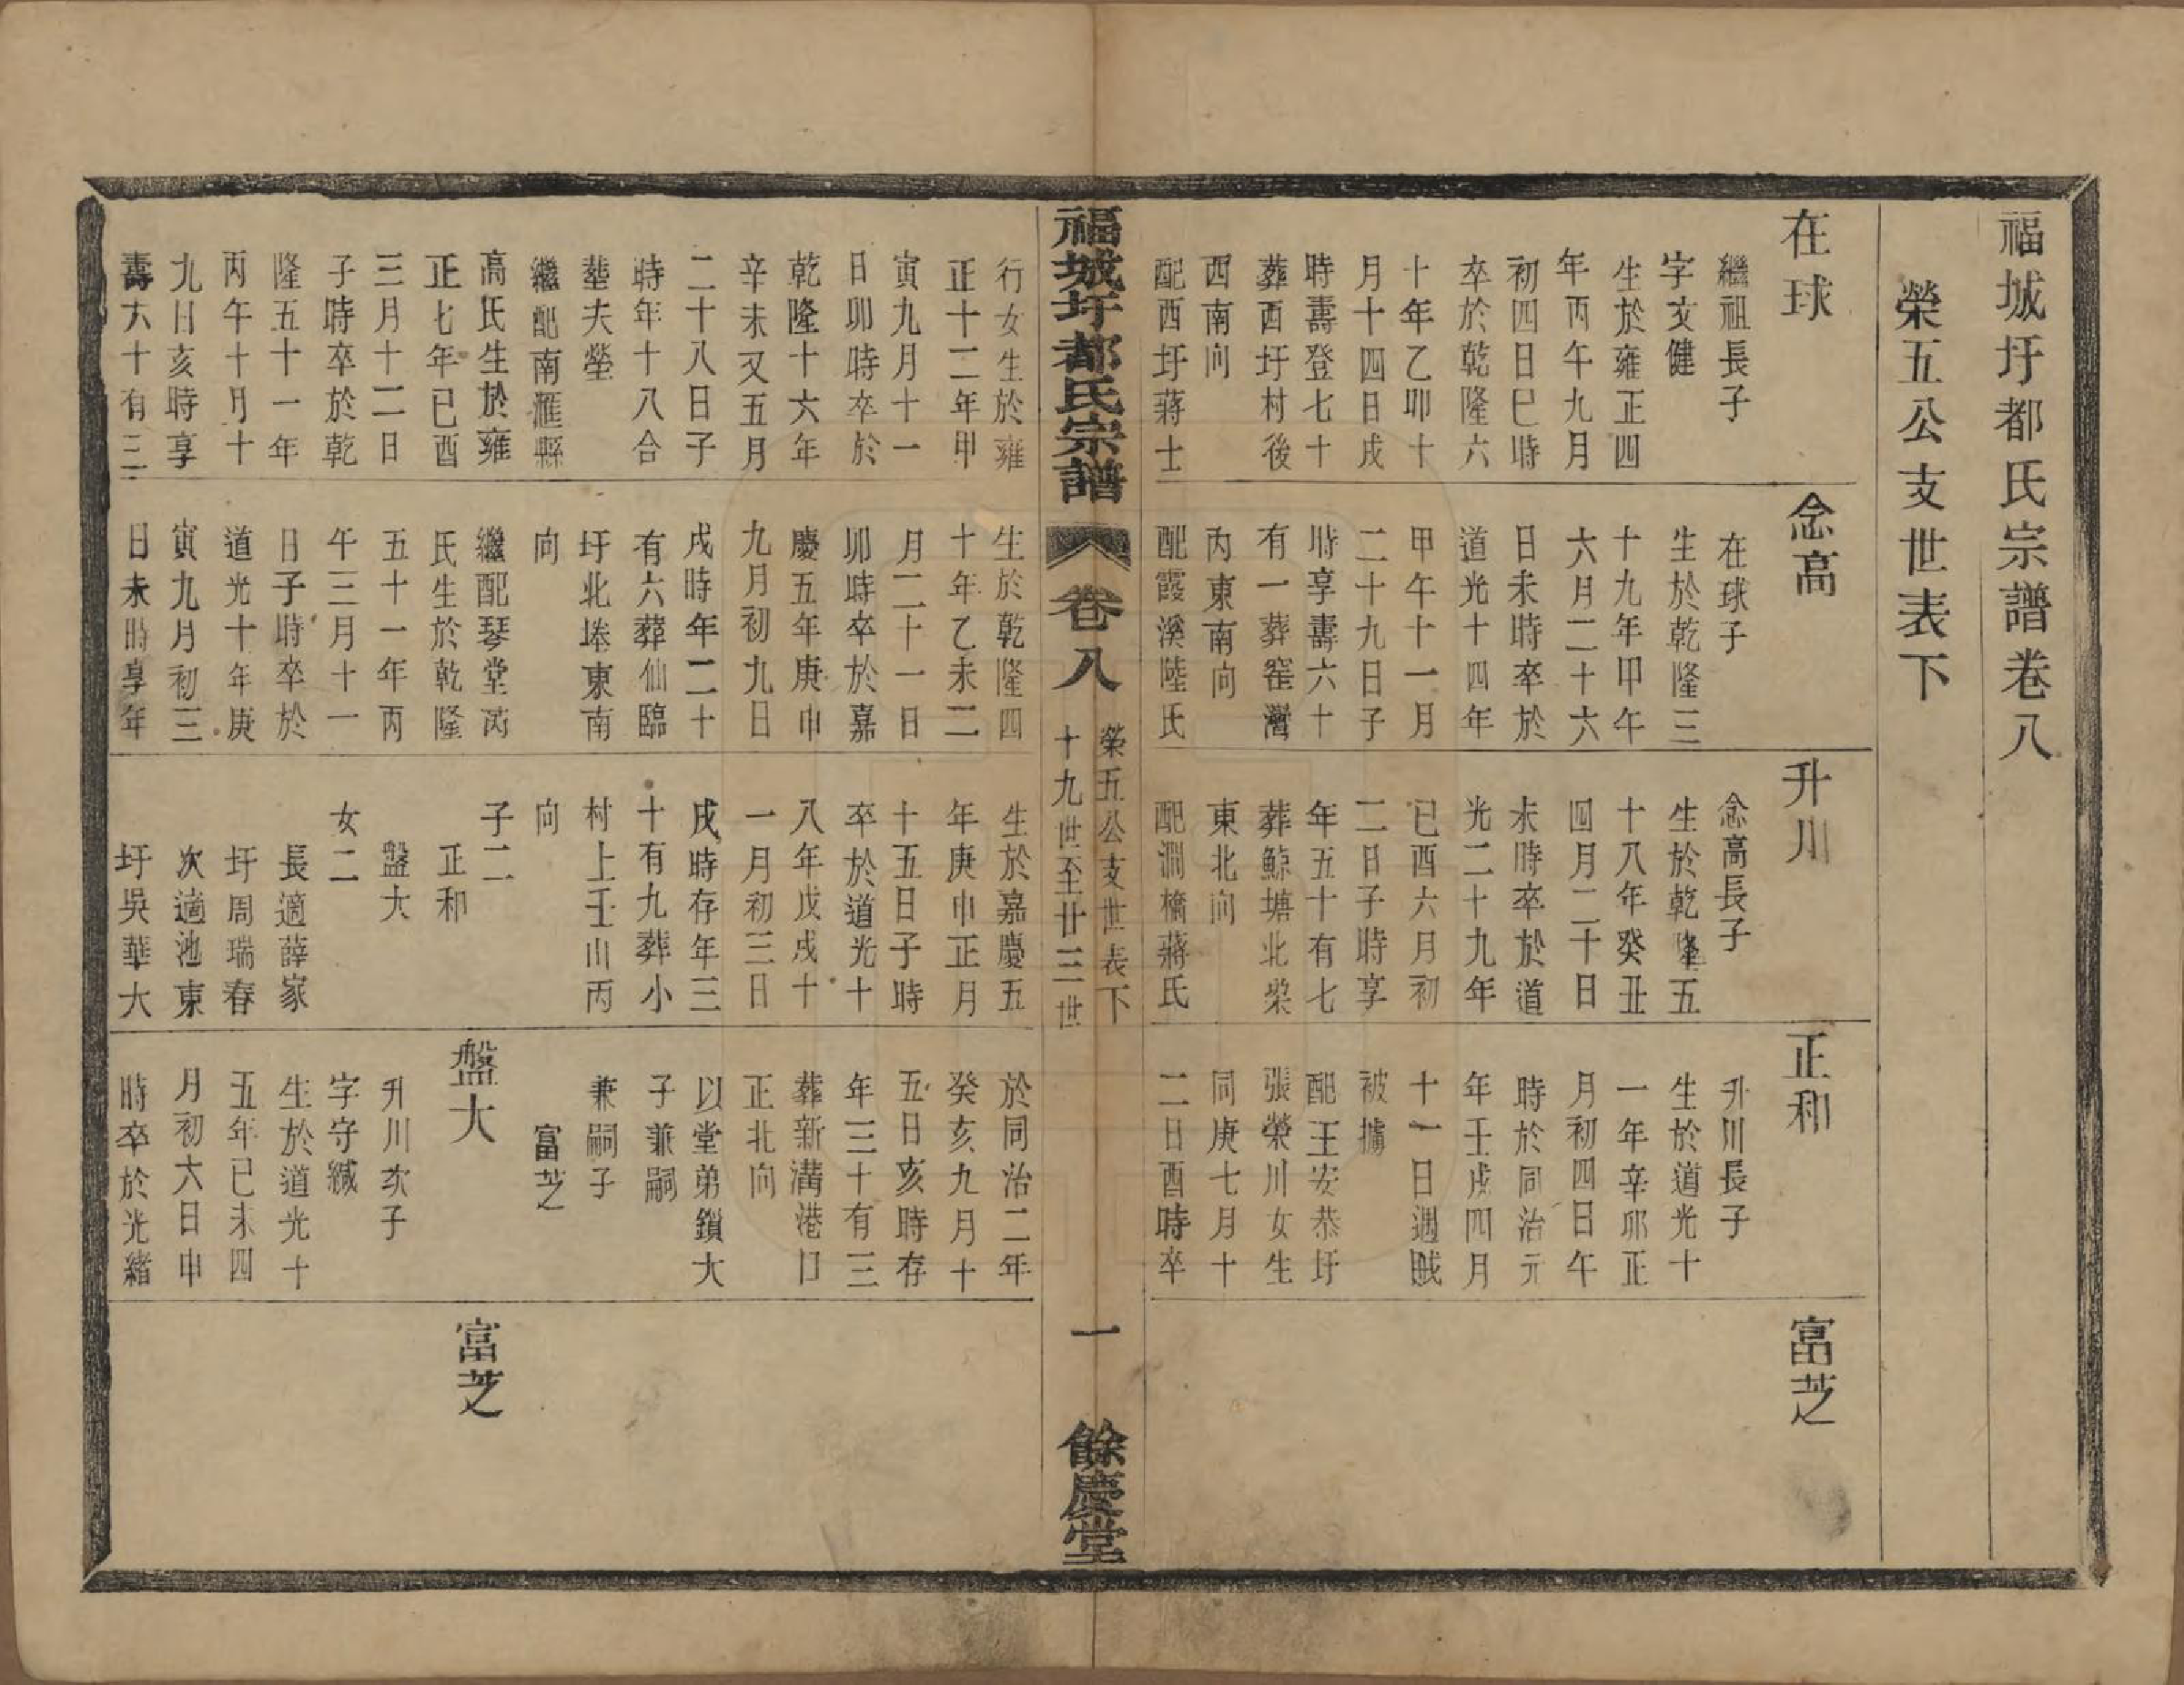 福城圩都氏宗譜卷八
榮五公支世表下
在球
繼祖長子
字文健
生於雍正四
年丙午九月
初四日巳時
卒於乾隆六
十年乙卯十
月十四日戌
時壽登七十
葬西圩村後
西南向
配西圩蔣士
念高
在球子
生於乾隆三
十九年甲午
六月二十六
日未時卒於
道光十四年
甲午十一月
二十九日子
時享壽六十
有一葬窑灣
丙東南向
配霞溪陸氏
升川
念高長子
生於乾隆五
十八年癸丑
四月二十日
未時卒於道
光二十九年
已酉六月初
二日子時享
年五十有七
葬鯨塘北柴
東北向
配澗橋蔣氏
正和
升川長子
生於道光十
一年辛邜正
月初四日午
時於同治元
年壬戌四月
十一日遇賊
被擄
配王安恭圩
張榮川女生
同庚七月十
二日酉時卒
富芝
福城圩都氏宗譜
卷八
榮五公支世表下
十九世至廿三世
一
餘慶堂
行女生於雍
正十二年甲
寅九月十一
日卯時卒於
乾隆十六年
辛未又五月
二十八日子
時年十八合
塟夫塋
繼配南滙縣
高氏生於雍
正七年已酉
三月十二日
子時卒於乾
隆五十一年
丙午十月十
九日亥時享
壽六十有三
生於乾隆四
十年乙未二
月二十一日
卯時卒於嘉
慶五年庚申
九月初九日
戌時年二十
有六葬仙臨
圩北塂東南
向
繼配琴堂芮
氏生於乾隆
五十一年丙
午三月十一
日子時卒於
道光十年庚
寅九月初三
日未時享年
生於嘉慶五
年庚申正月
十五日子時
卒於道光十
八年戊戌十
一月初三日
戌時存年三
十有九葬小
村上壬山丙
向
子二
正和
盤大
女二
長適薛家
圩周瑞春
次適池東
圩吳華大
於同治二年
癸亥九月十
五日亥時存
年三十有三
葬新溝港口
正北向
以堂弟鎖大
子兼嗣
兼嗣子
富芝
盤大
升川次子
字守緘
生於道光十
五年已未四
月初六日申
時卒於光緒
富芝